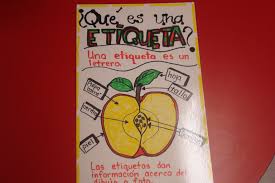 ¿Qué es una
ETIQUETA?
Una etiqueta es un
letrero.
hoja
tallo
piel
Las etiquetas dan
información acerca del
dibujo o foto.